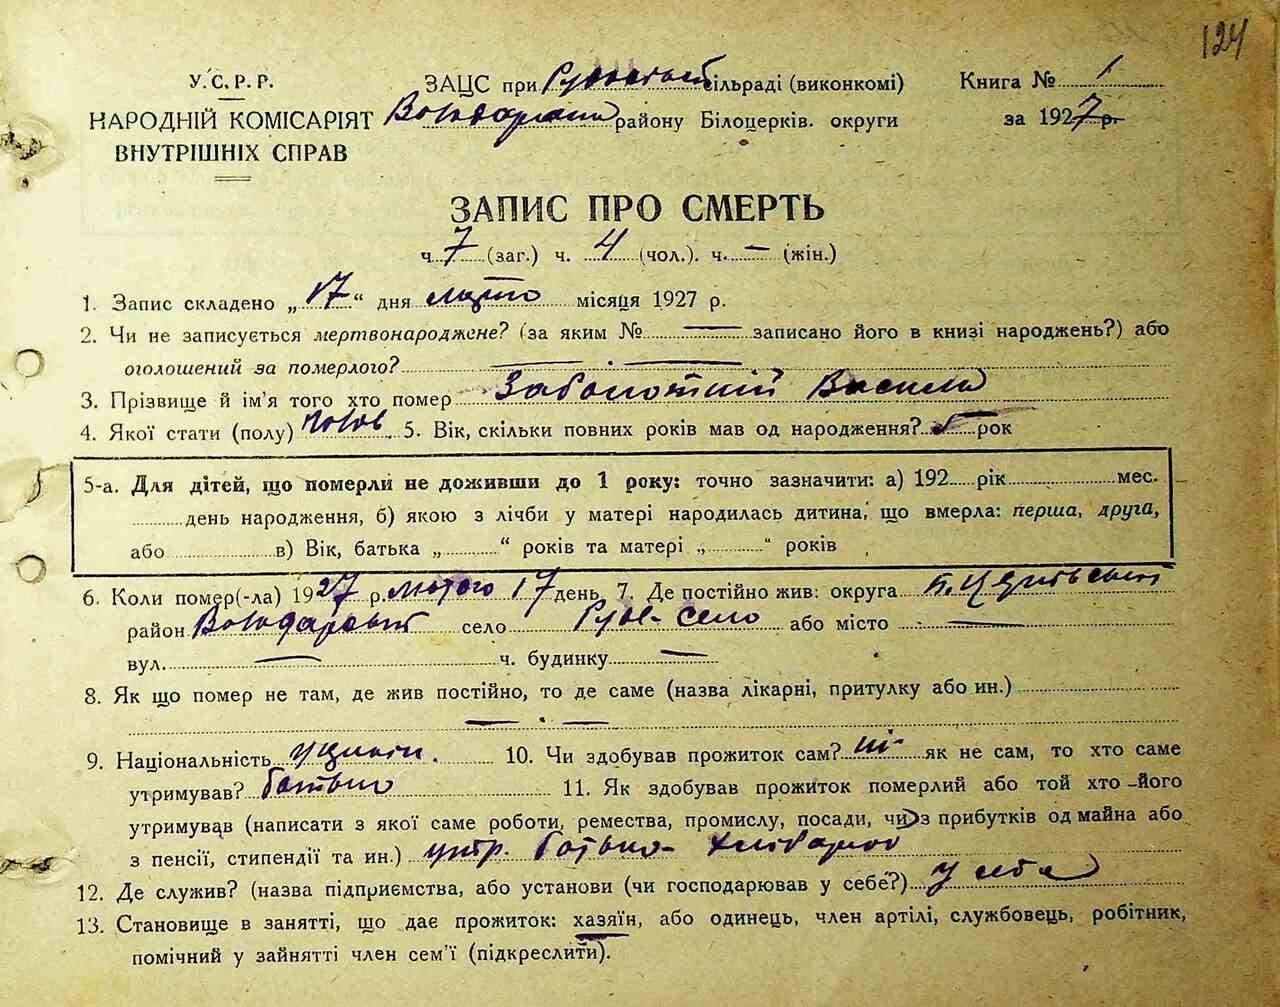 124
У.С.Р.Р.
НАРОДНІЙ КОМІСАРІЯТ
ВНУТРІШНІХ СПРАВ
ЗАЦС при сільраді (виконкомі)
Володарськ району Білоцерків. округи
Книга № 1
за 1927 р.
ЗАПИС ПРО СМЕРТЬ
ч. 7 (заг.) ч. 4 (чол.). ч. — (жін.)
1. Запис складено „17“ дня лютого місяця 1927 р.
2. Чи не записується мертвонароджене? (за яким № — записано його в книзі народжень?) або
оголошений за померлого? —
3. Прізвище й ім'я того хто помер Заболотний Василь
4. Якої стати (полу) чолов. 5. Вік, скільки повних років мав од народження? рок
5-а. Для дітей, що померли не доживши до 1 року: точно зазначити: а) 192 рік мес.
день народження, б) якою з лічби у матері народилась дитина, що вмерла: перша, друга,
або в) Вік, батька „ “ років та матері „ “ років
6. Коли помер(-ла) 1927 р. лютого 17 день 7. Де постійно жив: округа Б. Церківський
район Володарський село Руде-Село або місто —
вул. — ч. будинку —
8. Як що помер не там, де жив постійно, то де саме (назва лікарні, притулку або ин.)
9. Національність україн. 10. Чи здобував прожиток сам? ні як не сам, то хто саме
утримував? батько 11. Як здобував прожиток померлий або той хто його
утримував (написати з якої саме роботи, ремества, промислу, посади, чи з прибутків од майна або
з пенсії, стипендії та ин.) утр. батько хлібороб
12. Де служив? (назва підприємства, або установи (чи господарював у себе?) у себе
13. Становище в занятті, що дає прожиток: хазяїн, або одинець, член артілі, службовець, робітник,
помічний у зайнятті член сем'ї (підкреслити).